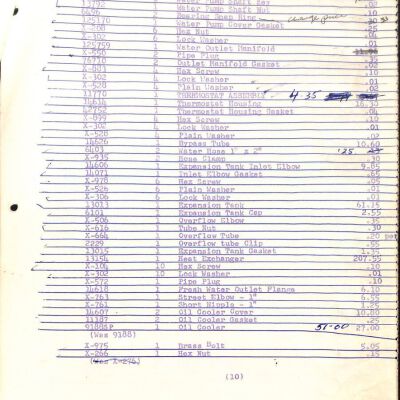 13792 Water Pump Shaft Key .02
Water Pump Shaft Nut .10
Bearing Snap Ring
125170 Water Pump Cover Gasket
X-268 6 Hex Nut .02
X-302 6 Lock Washer .01
125759 1 Water Outlet Manifold
X-556 2 Pipe Plug .35
2 Outlet Manifold Gasket .02
4 Hex Screw .10
X-302 4 Lock Washer .01
X-528 4 Plain Washer .02
13770 1 THERMOSTAT ASSEMBLY 4 35
14614 1 Thermostat Housing 16.30
1 Thermostat Housing Gasket .04
X-899 4 Hex Screw .10
X-302 4 Lock Washer .01
X-528 4 Plain Washer .02
14626 1 Bypass Tube 10.60
6403 Water Hose 1" x 2" .25
X-935 2 Hose Clamp .30
14606 1 Expansion Tank Inlet Elbow 9.85
14071 1 Inlet Elbow Gasket .65
X-978 6 Hex Screw .05
X-526 6 Plain Washer .01
X-306 6 Lock Washer .01
13013 1 Expansion Tank 61.15
6101 1 Expansion Tank Cap 2.55
X-506 1 Overflow Elbow .35
X-616 1 Tube Nut .30
X-664 Overflow Tube .20 per
2229 1 Overflow tube Clip .55
13015 1 Expansion Tank Gasket 1.35
13154 1 Heat Exchanger 207.55
X-104 10 Hex Screw .10
X-302 10 Lock Washer .01
X-572 1 Pipe Plug .10
14618 1 Fresh Water Outlet Flange 6.10
X-763 1 Street Elbow - 1" 6.55
X-761 1 Short Nipple - 1" 1.25
14607 2 Oil Cooler Cover 10.80
11187 2 Oil Cooler Gasket .25
9188SP 1 Oil Cooler 51-60 27.00
(Was 9188)
X-975 1 Brass Bolt 5.05
X-266 1 Hex Nut .15
(Was X-276)
(10)